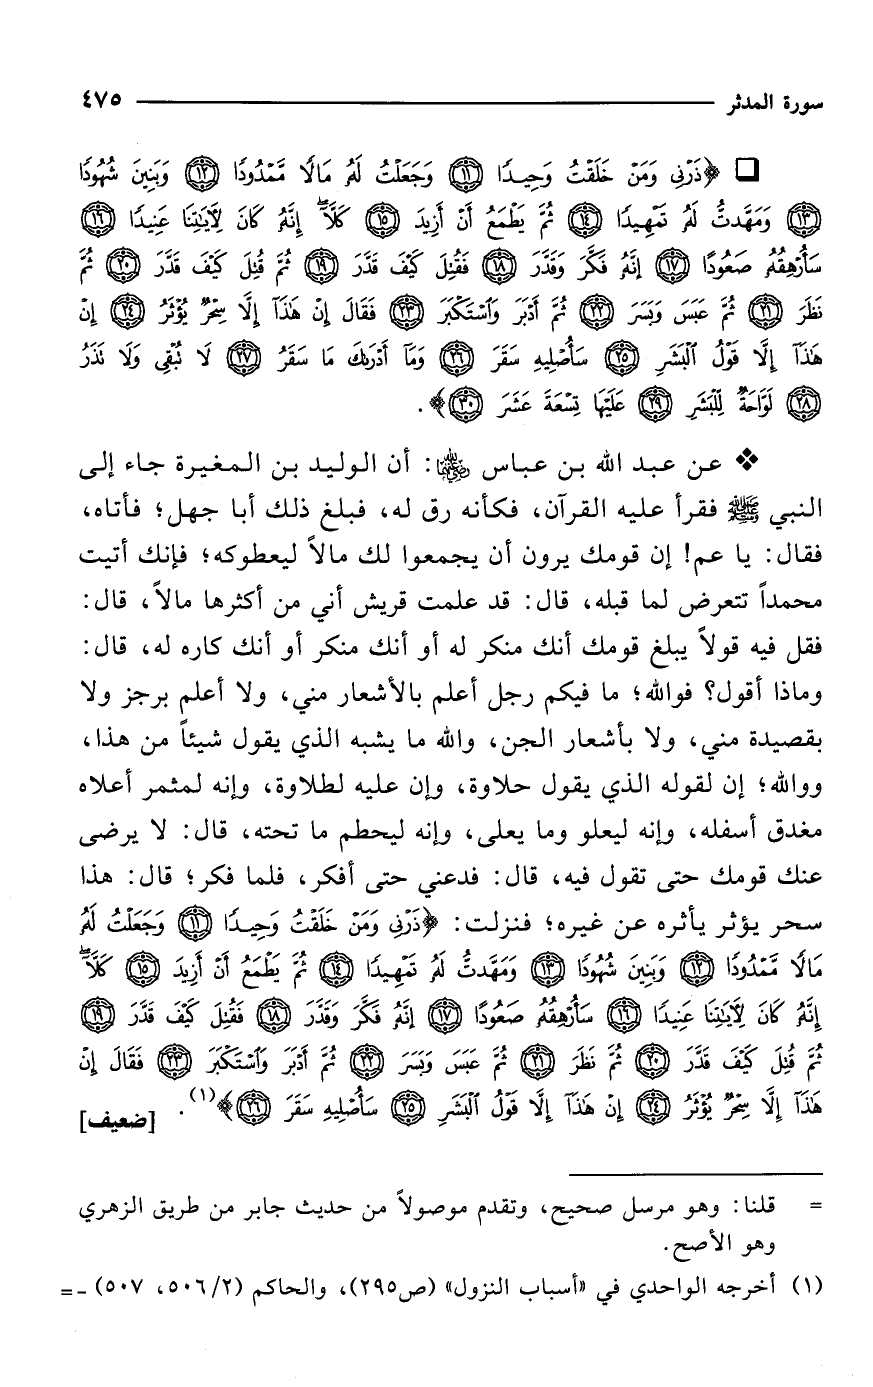 سورة المدثر ٤٧٥
﴿ذَرْنِي وَمَنْ خَلَقْتُ وَحِيدًا ١١ وَجَعَلْتُ لَهُ مَالًا مَّمْدُودًا ١٢ وَبَنِينَ شُهُودًا
١٣ وَمَهَّدتُّ لَهُ تَمْهِيدًا ١٤ ثُمَّ يَطْمَعُ أَنْ أَزِيدَ ١٥ كَلَّا إِنَّهُ كَانَ لِآيَاتِنَا عَنِيدًا ١٦
سَأُرْهِقُهُ صَعُودًا ١٧ إِنَّهُ فَكَّرَ وَقَدَّرَ ١٨ فَقُتِلَ كَيْفَ قَدَّرَ ١٩ ثُمَّ قُتِلَ كَيْفَ قَدَّرَ ٢٠ ثُمَّ
نَظَرَ ٢١ ثُمَّ عَبَسَ وَبَسَرَ ٢٢ ثُمَّ أَدْبَرَ وَاسْتَكْبَرَ ٢٣ فَقَالَ إِنْ هَذَا إِلَّا سِحْرٌ يُؤْثَرُ ٢٤ إِنْ
هَذَا إِلَّا قَوْلُ الْبَشَرِ ٢٥ سَأُصْلِيهِ سَقَرَ ٢٦ وَمَا أَدْرَاكَ مَا سَقَرُ ٢٧ لَا تُبْقِي وَلَا تَذَرُ
٢٨ لَوَّاحَةٌ لِّلْبَشَرِ ٢٩ عَلَيْهَا تِسْعَةَ عَشَرَ ٣٠﴾.
عن عبد الله بن عباس رضي الله عنهما: أن الوليد بن المغيرة جاء إلى
النبي ﷺ فقرأ عليه القرآن، فكأنه رق له، فبلغ ذلك أبا جهل؛ فأتاه،
فقال: يا عم! إن قومك يرون أن يجمعوا لك مالاً ليعطوكه؛ فإنك أتيت
محمداً تتعرض لما قبله، قال: قد علمت قريش أني من أكثرها مالاً، قال:
فقل فيه قولاً يبلغ قومك أنك منكر له أو أنك منكر أو أنك كاره له، قال:
وماذا أقول؟ فوالله؛ ما فيكم رجل أعلم بالأشعار مني، ولا أعلم برجز ولا
بقصيدة مني، ولا بأشعار الجن، والله ما يشبه الذي يقول شيئاً من هذا،
ووالله؛ إن لقوله الذي يقول حلاوة، وإن عليه لطلاوة، وإنه لمثمر أعلاه
مغدق أسفله، وإنه ليعلو وما يعلى، وإنه ليحطم ما تحته، قال: لا يرضى
عنك قومك حتى تقول فيه، قال: فدعني حتى أفكر، فلما فكر؛ قال: هذا
سحر يؤثر يأثره عن غيره؛ فنزلت: ﴿ذَرْنِي وَمَنْ خَلَقْتُ وَحِيدًا ١١ وَجَعَلْتُ لَهُ
مَالًا مَّمْدُودًا ١٢ وَبَنِينَ شُهُودًا ١٣ وَمَهَّدتُّ لَهُ تَمْهِيدًا ١٤ ثُمَّ يَطْمَعُ أَنْ أَزِيدَ ١٥ كَلَّا
إِنَّهُ كَانَ لِآيَاتِنَا عَنِيدًا ١٦ سَأُرْهِقُهُ صَعُودًا ١٧ إِنَّهُ فَكَّرَ وَقَدَّرَ ١٨ فَقُتِلَ كَيْفَ قَدَّرَ ١٩
ثُمَّ قُتِلَ كَيْفَ قَدَّرَ ٢٠ ثُمَّ نَظَرَ ٢١ ثُمَّ عَبَسَ وَبَسَرَ ٢٢ ثُمَّ أَدْبَرَ وَاسْتَكْبَرَ ٢٣ فَقَالَ إِنْ
هَذَا إِلَّا سِحْرٌ يُؤْثَرُ ٢٤ إِنْ هَذَا إِلَّا قَوْلُ الْبَشَرِ ٢٥ سَأُصْلِيهِ سَقَرَ ٢٦﴾(١). [ضعيف]
= قلنا: وهو مرسل صحيح، وتقدم موصولاً من حديث جابر من طريق الزهري
وهو الأصح.
(١) أخرجه الواحدي في «أسباب النزول» (ص٢٩٥)، والحاكم (٢/ ٥٠٦، ٥٠٧) - =